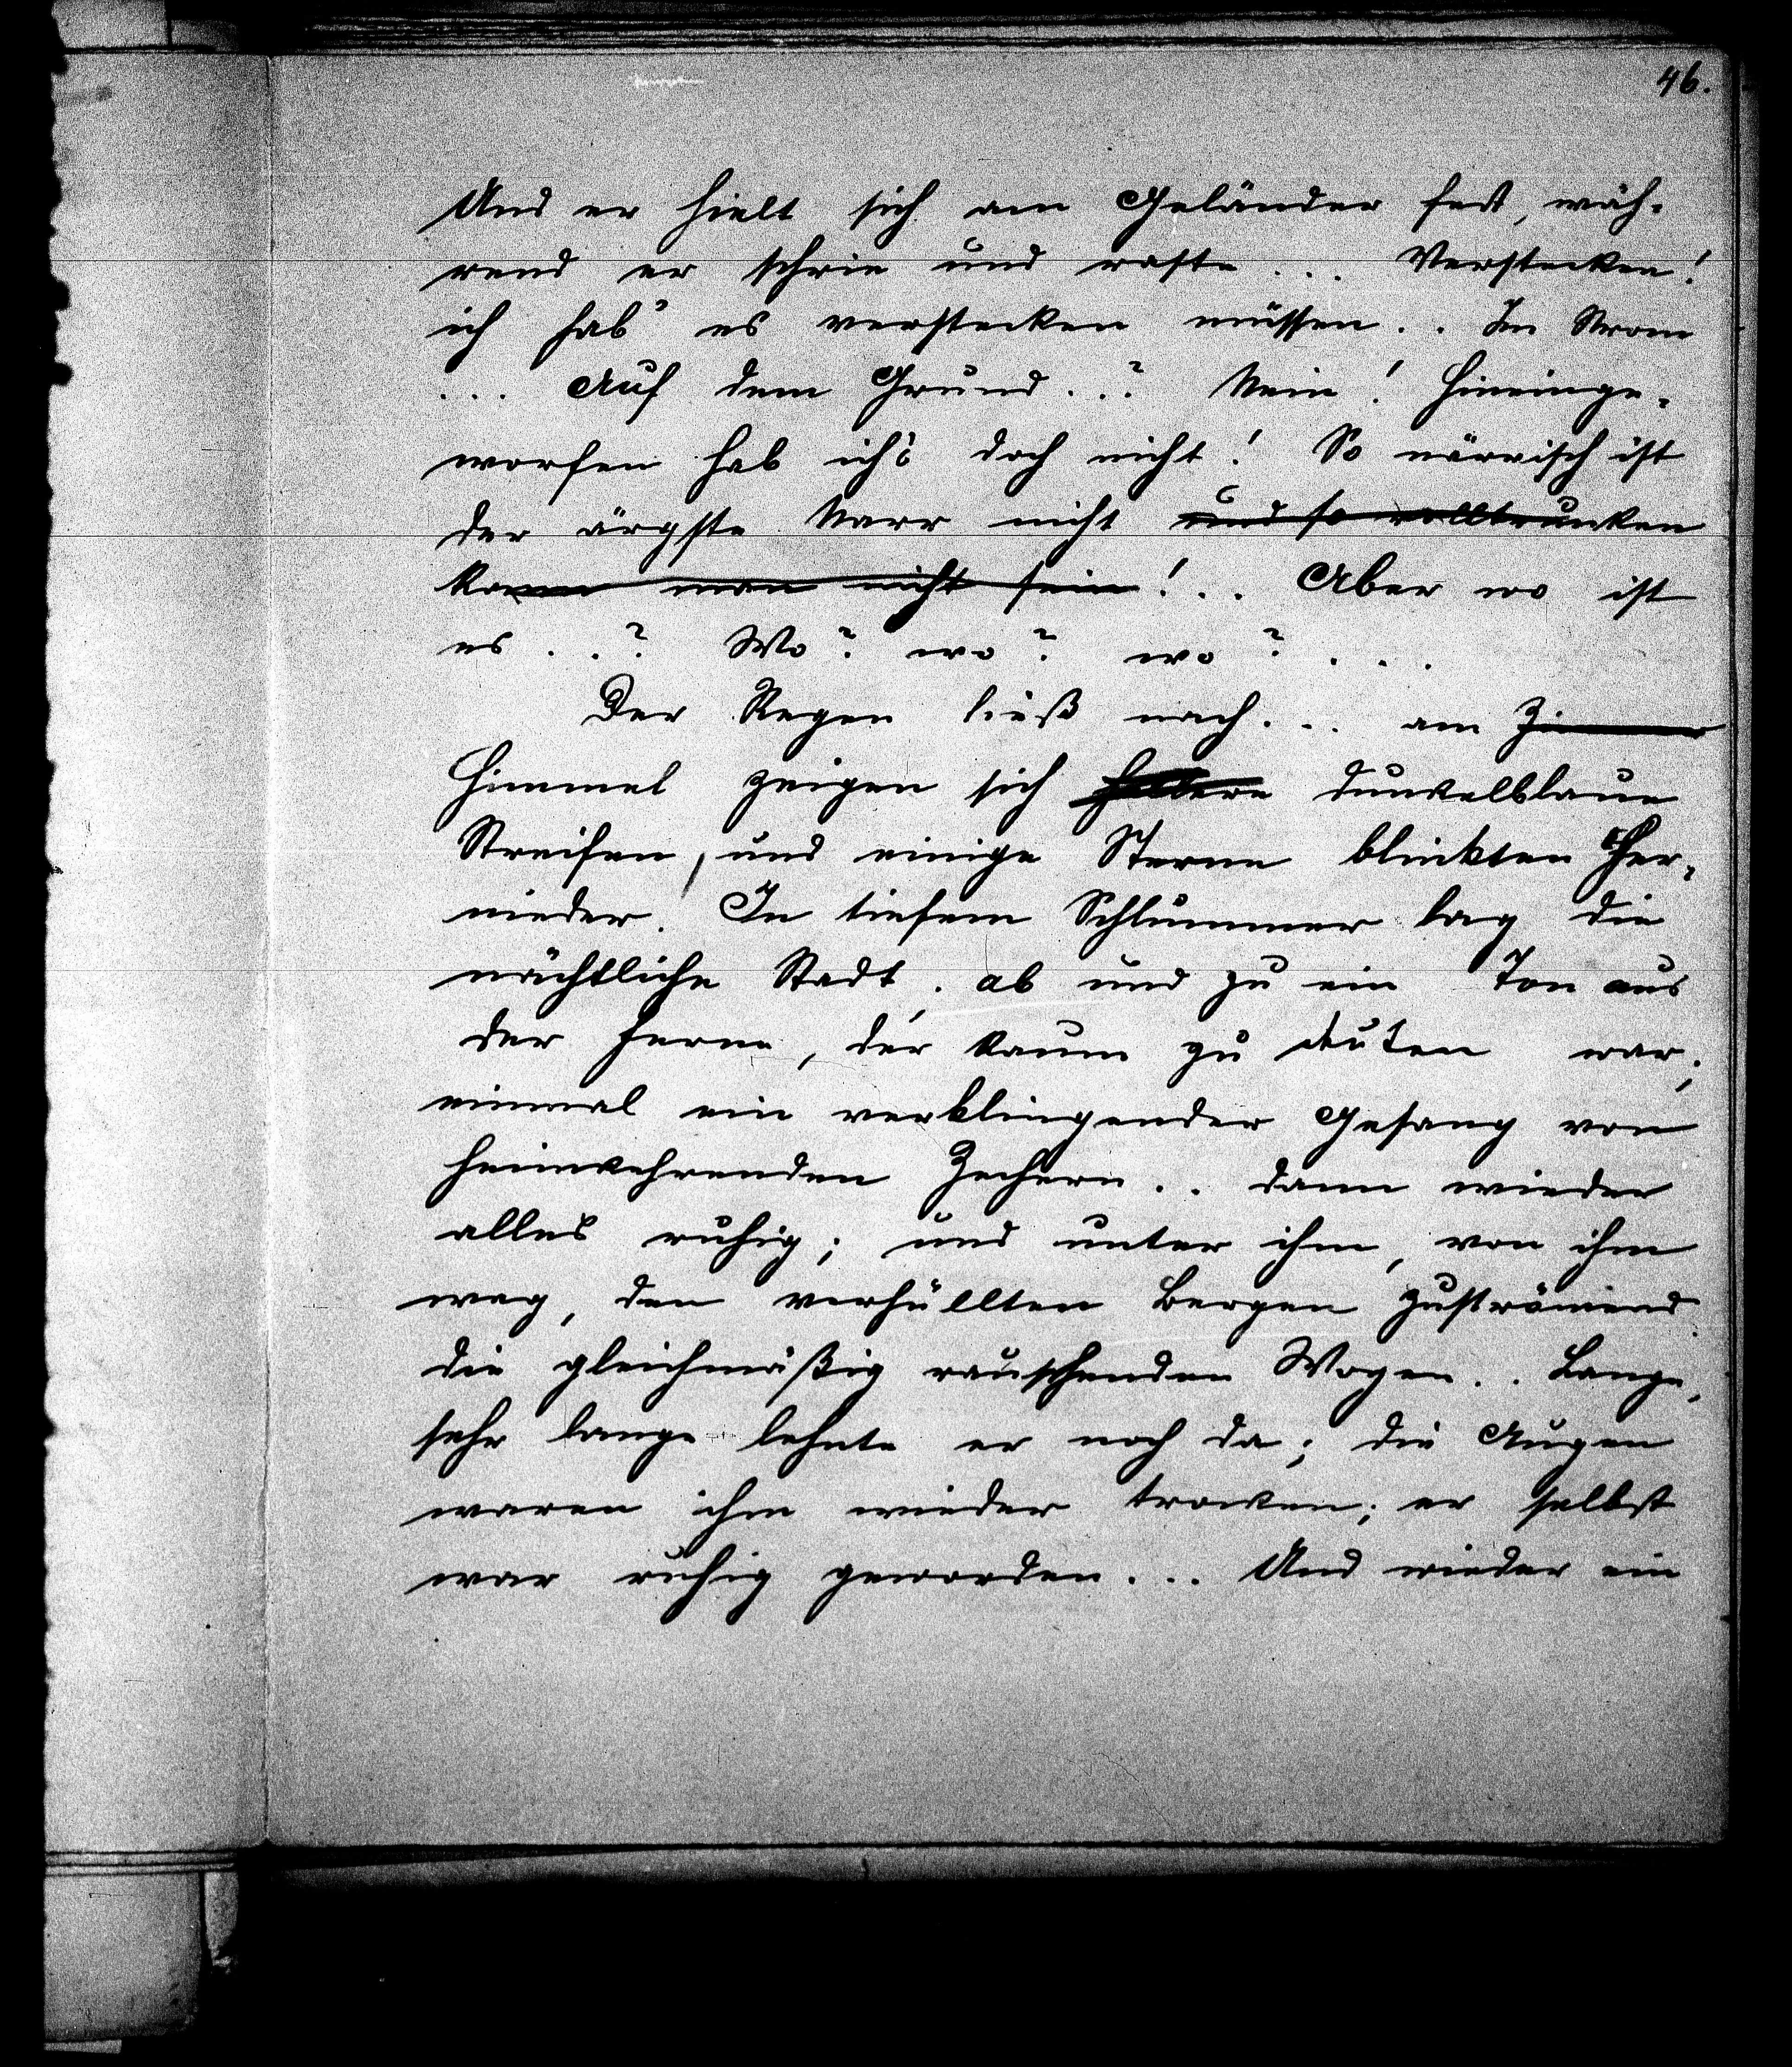 46.
Und er hielt sich am Geländer fest, wäh-
rend er schrie und raste... Verstecken!
ich hab' es verstecken müssen.. Im Strom
... Auf dem Grund..? Nein! Hineinge-
worfen hab ich's doch nicht! So närrisch ist
der ärgste Narr nicht und so volltrunken
kann man nicht sein!.. Aber wo ist
es..? Wo? wo? wo?...
Der Regen ließ nach... am Zimmer
Himmel zeigen sich hellere dunkelblaue
Streifen, und einige Sterne blinkten her-
nieder. In tiefem Schlummer lag die
nächtliche Stadt. ab und zu ein Ton aus
der Ferne, der kaum zu deuten war;
einmal ein verklingender Gesang von
heimkehrenden Zechern.. dann wieder
alles ruhig; und unter ihm, von ihm
weg, den verhüllten Bergen zuströmend
die gleichmäßig rauschenden Wogen.. Lange,
sehr lange lehnte er noch da; die Augen
waren ihm wieder trocken; er selbst
war ruhig geworden... Und wieder ein